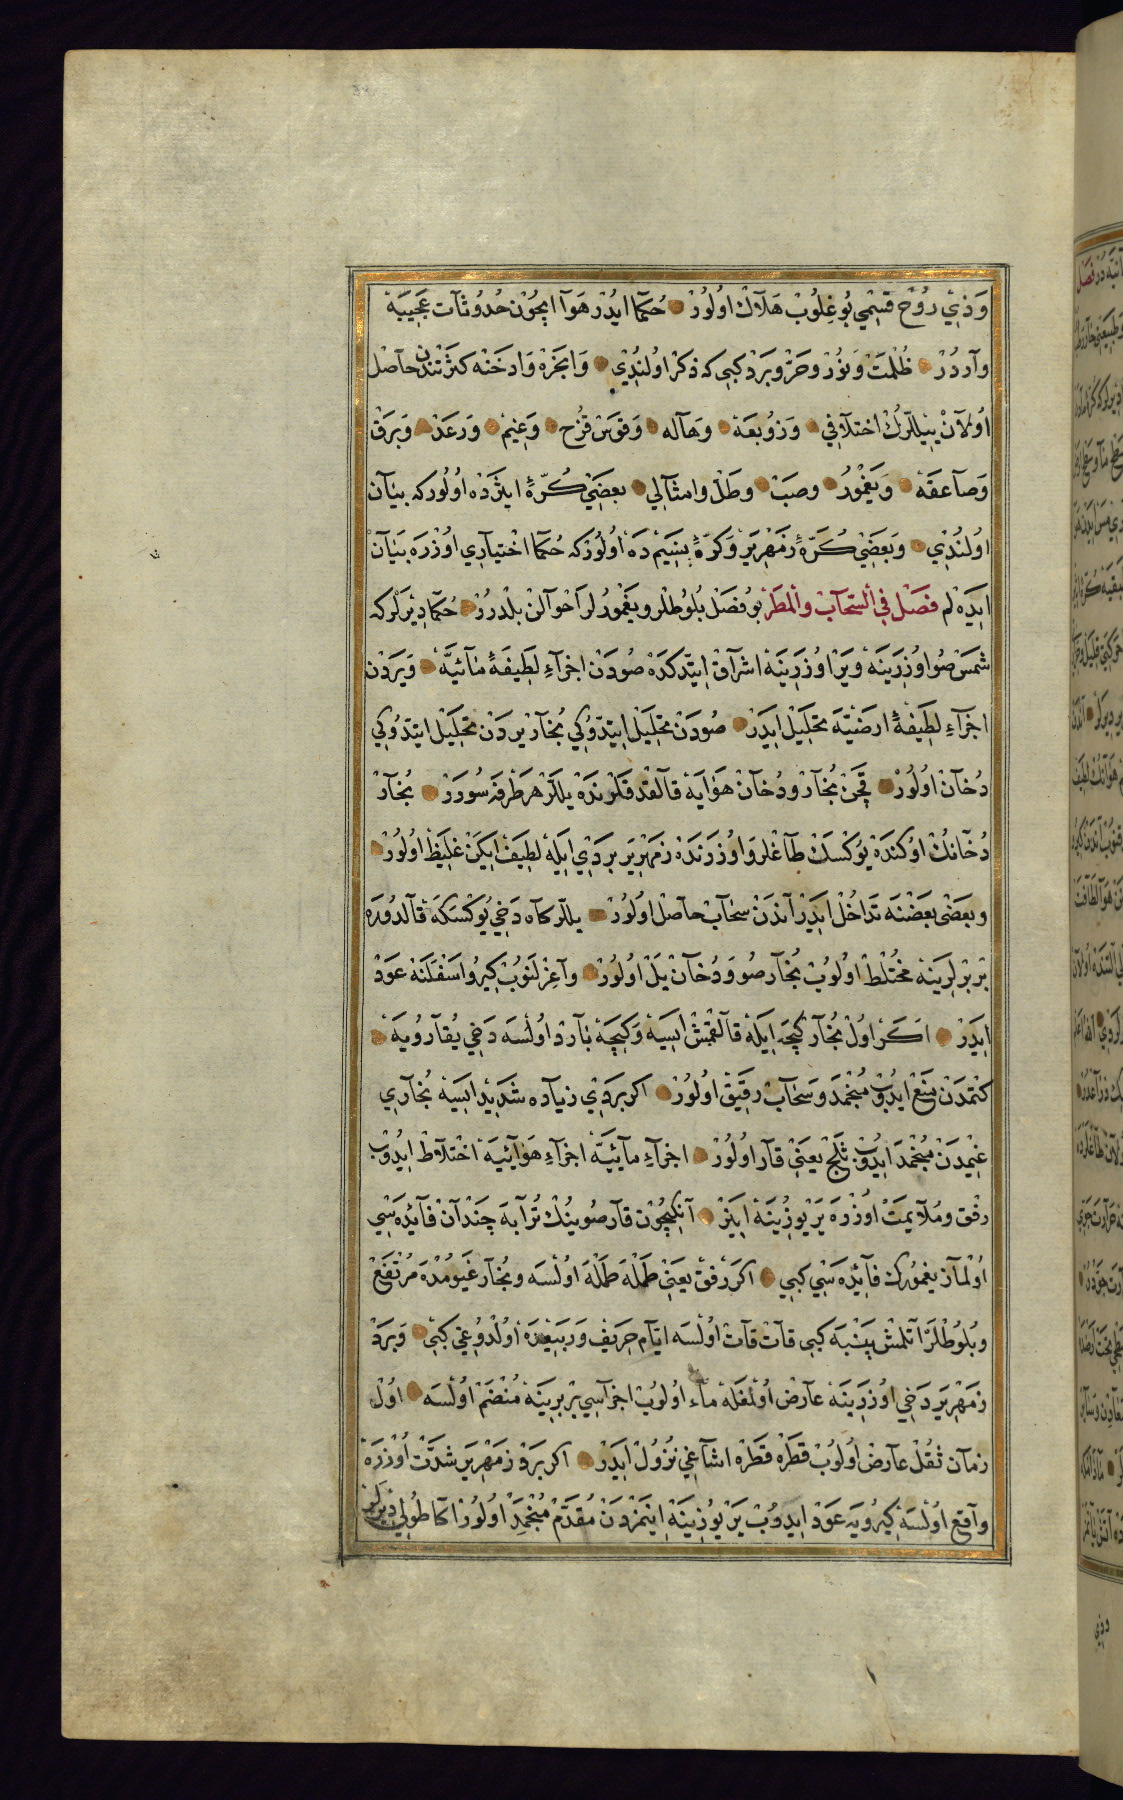 وَذِي رُوْح قِسْمِي بُوغِلُوبْ هَلَاكْ اوُلُورْ حُكَمَا ايدُرْ هَوَا ايچُوْن حُدُوثَات عَجِيبَهْ
وآردُرْ ظُلْمَتْ وَنُورْ وحَرّ وبَرْد كبي كه ذكْر اوُلندُيْ وَابخَرَهْ وَادخنَه كثرَتندن حاصل
اوُلَانْ ييللّرُكْ اختلافي وَزوُبعَهْ وهَاله وَقوَس قُزَح وَغيْم وَرَعدْ وَبَرَقْ
وَصآعقَهْ وَيَغمُورْ وصبْ وطَلّ وامثالي بعضَيْ كُرّهٔ ايثردَه اوُلُور كه بيَان
اوُلنُدْي وَبعَضيْ كُرّهٔ زمَهْرِيرْ وَكرّهٔ نسَيمْ دَه اوُلُوْر كه حُكَمَا اخْتيَارِي اوُزْرَه بَيَانْ
ايدَه لم فصَلْ في السّحَابْ والمَطَرْ بوُ فصَل بُلوُطْلر ويَغمُورلر اَحْوَالنْ بلْدرُرْ حُكمَا ديْرَلر كه
شمَسْ صُو اوُزرَينَهْ ويَرْ اوُزرَينَهْ اشرَاقْ ايتدكدَهْ صُودَنْ اجْزآءِ لطِيفَهٔ مَائيّهْ وَيَردَن
اجزآءِ لطَيفهٔ ارضَيّه تحليَل ايدَرْ صُودَنْ تحليَل ايتدُوكي بُخآرْ يردَن تحليَل ايتدُوكي
دُخآنْ اوُلُورْ قَچَنْ بُخآرْ ودُخآنْ هَوَايَهْ قالقدقلرندَهْ يللَر هر طَرفه سُورَرْ بُخآرْ
دُخآنكْ اوُكندَهْ يوُكسَكْ طآغلر وَاوُزرَندَهْ زمهْرِير بردَي ايلَه لطَيفْ ايكَنْ غليَظْ اوُلُورْ
وبعَضْي بعَضنَه تدَاخُلْ ايدَرْ آندَنْ سحَابْ حاصل اوُلُورْ يللر كاه دَخي يوُكسَكهَ قالدُورَهْ
برْ برْلَرِينَهْ مخُتلَطْ اوُلوُبْ بُخآر صُو وَدُخآنْ يَلْ اوُلُورْ وآغرلنوُبْ كيرُو اسفَلنَهْ عَودْ
ايدَرْ اَكَر اوُلْ بُخآر كيجَه ايلَهْ قالقمشْ ايسَهْ وَكيجَهْ بآردْ اوُلسَه دَخي يُقآرُويَهْ
كتمدَنْ منَعْ ايدُوبْ منُجمَدَ وَسَحَابْ رقيَقْ اوُلُورْ اكر بردَي زيآده شدَيد ايسَه بُخآرِي
غيْمدَنْ منُجمَد ايدُوبْ ثلَجْ يعَنيْ قار اوُلُورْ اجزآءِ مآئيّهْ اجزآءِ هَوَائيَهْ اخْتلَاطْ ايدُوبْ
رفق ومُلَايمَتْ اوُزْرَه يَرْ يوُزُينَهْ اينَرْ آنكيچُونْ قار صُوينُكْ تُرابَه چَندَانْ فائدَه سَي
اوُلماز يغمُورك فائدَه سَي كبي اكر رفقْ يعَني طَملَه طَملَه اوُلسَه وبخُار غيوُمدَه مُرْتفَعْ
وبُلُوطلَر آتلمشْ پنبَه كبي قاتْ قاتْ اوُلسَه ايّام خريفْ ورَبيعْدَه اوُلدُوُغي كبي وَبَردْ
زمَهْرِير دَخي اوُزرينَهْ عارضْ اوُلمغله مآء اوُلوُبْ اجزآسِي برْ برينَهْ منُضمّ اوُلسَه اوُل
زمآن ثقُلْ عآرضْ اوُلوُبْ قطَرَهْ قطَرَهْ اشآغي نزُوُلْ ايدَرْ اكر بَردْ زمَهْرِيرْ شدَّتْ اوُزرَهْ
وآقع اوُلسَه كيرُويَه عَودْ ايدوُبْ يَرْ يوُزينَهْ اينمَزدَنْ مُقدَّمْ منُجمَدْ اوُلُورْ اكا طُولي ديرلر